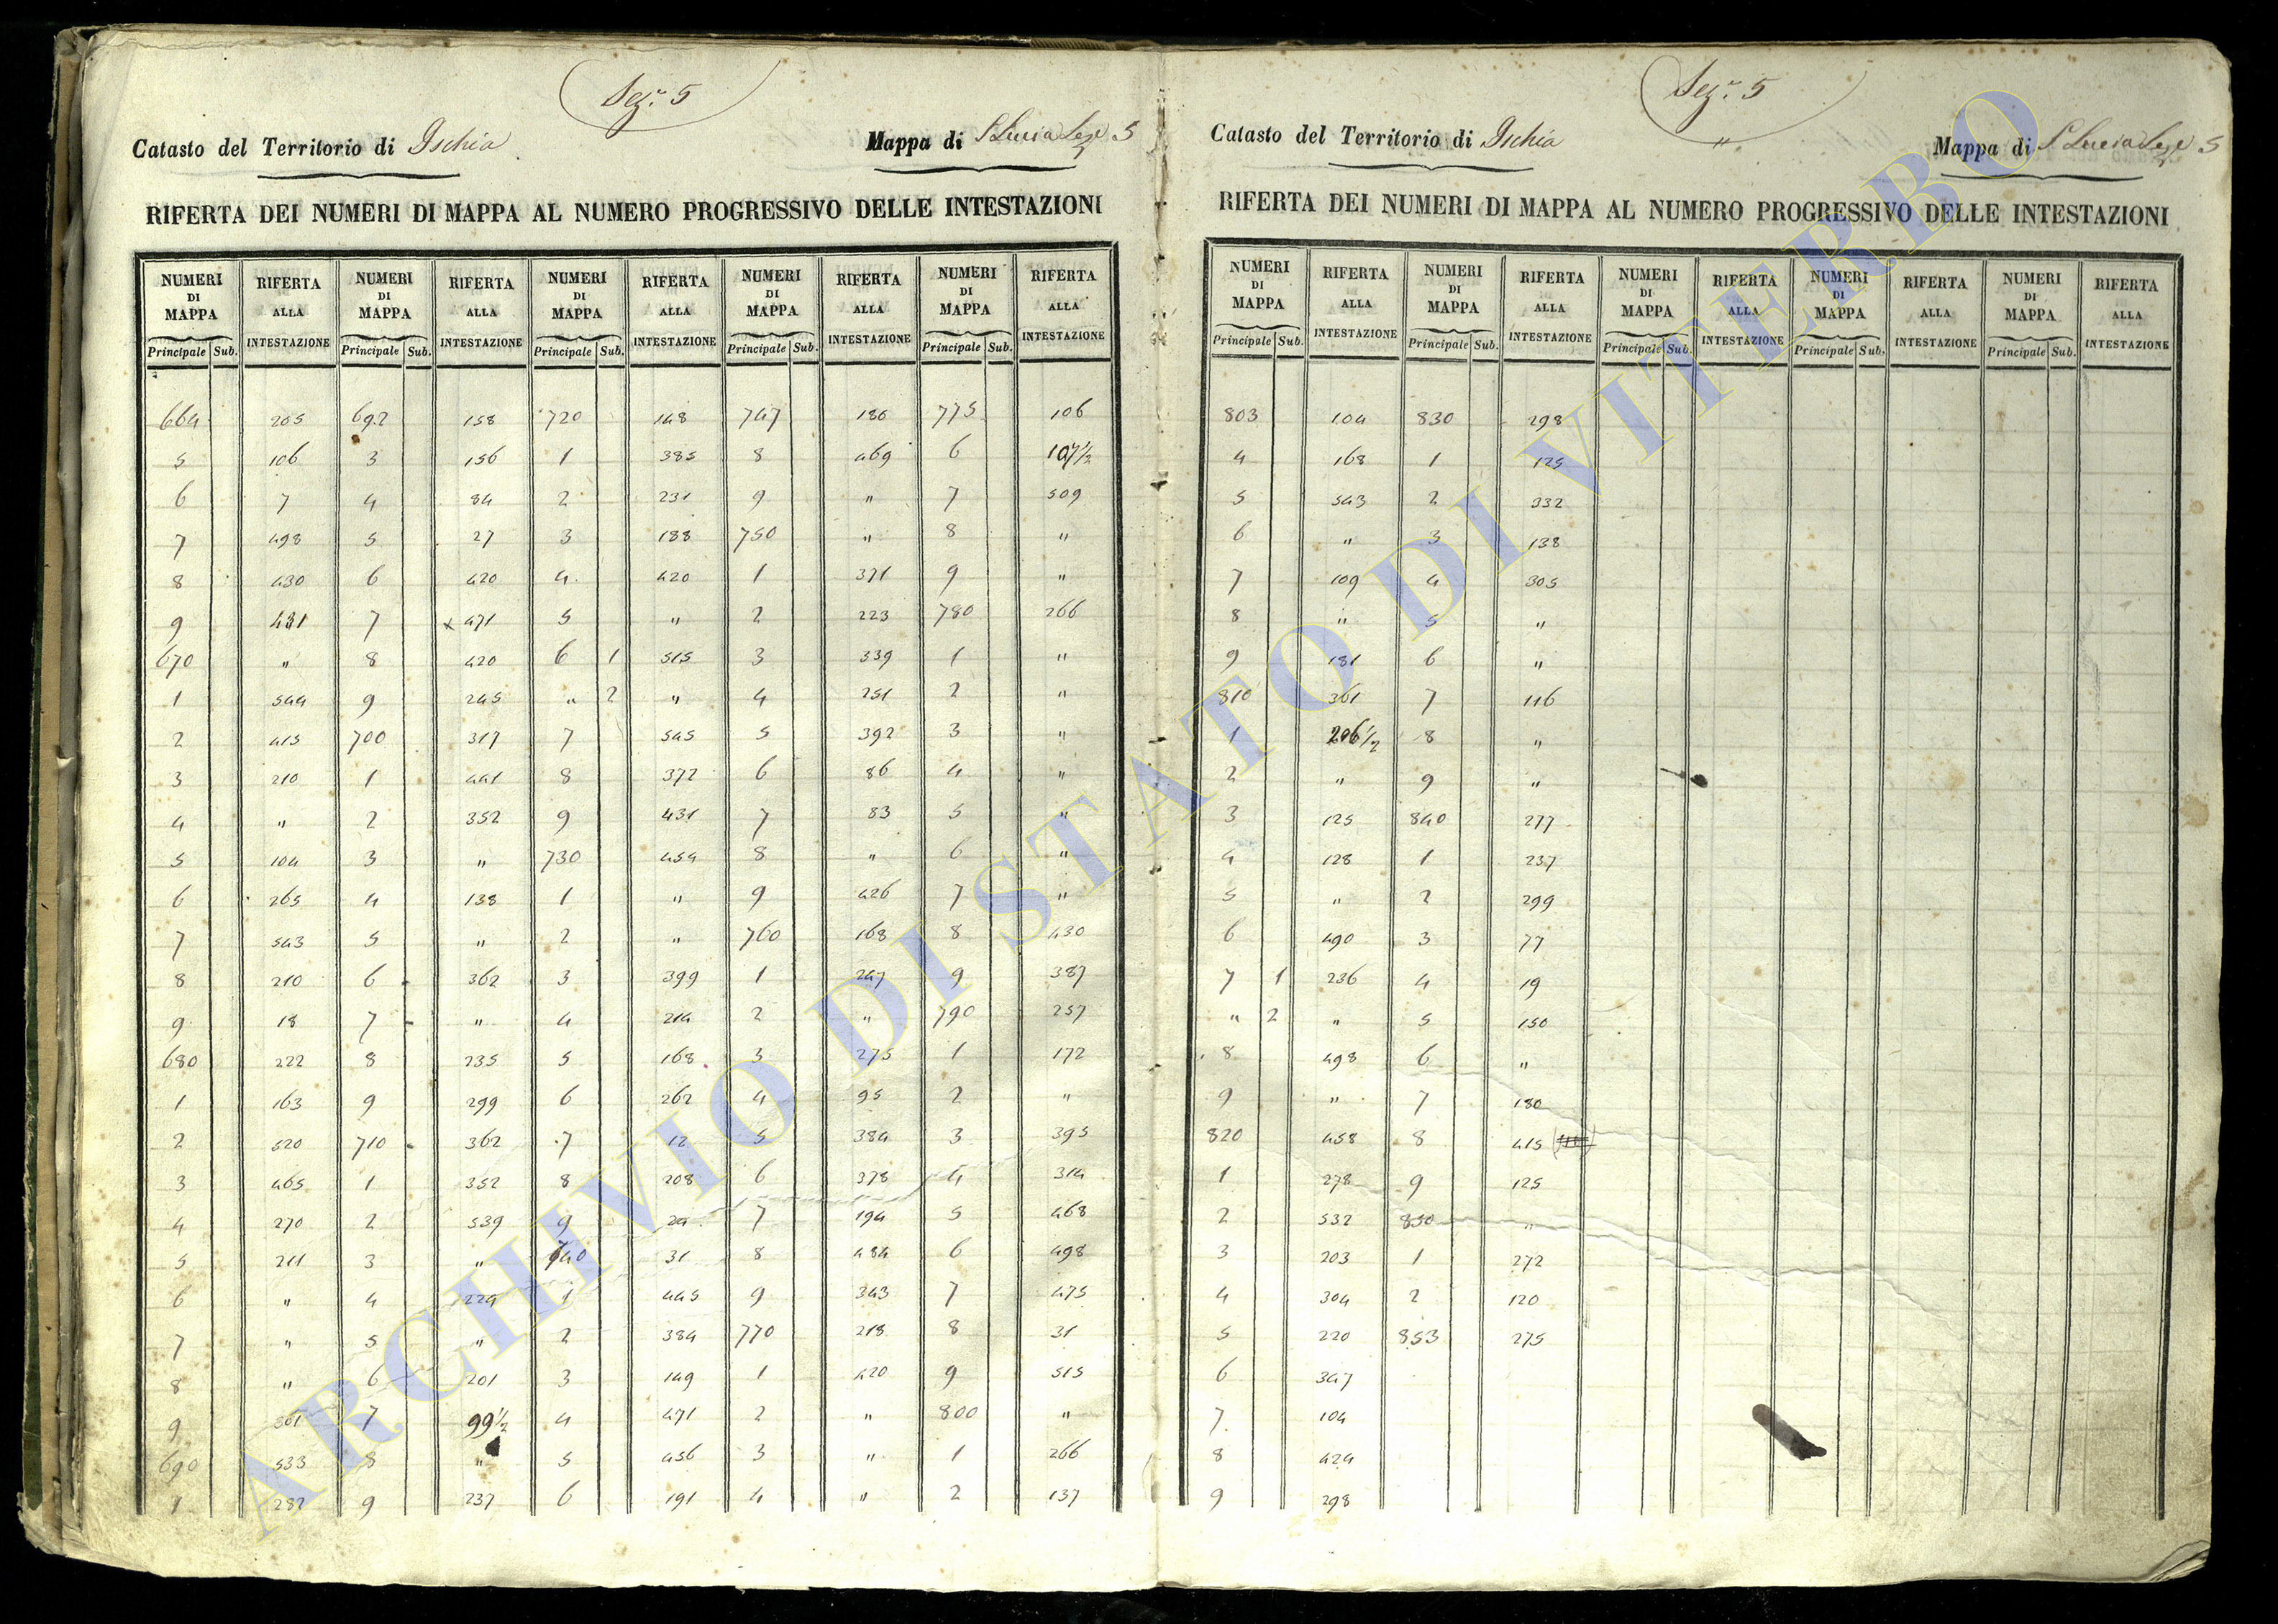 Sez.e 5
Catasto del Territorio di Ischia
Mappa di S. Lucia Seze 5
RIFERTA DEI NUMERI DI MAPPA AL NUMERO PROGRESSIVO DELLE INTESTAZIONI
NUMERI DI MAPPA RIFERTA ALLA INTESTAZIONE NUMERI DI MAPPA RIFERTA ALLA INTESTAZIONE NUMERI DI MAPPA RIFERTA ALLA INTESTAZIONE NUMERI DI MAPPA RIFERTA ALLA INTESTAZIONE NUMERI DI MAPPA RIFERTA ALLA INTESTAZIONE
Principale Sub. Principale Sub. Principale Sub. Principale Sub. Principale Sub.
664 205 692 158 720 148 747 180 775 106
5 106 3 156 1 385 8 469 6 107 1/2
6 7 4 84 2 231 9 " 7 509
7 498 5 27 3 188 750 " 8 "
8 430 6 420 4 420 1 371 9 "
9 431 7 x 471 5 " 2 223 780 266
670 " 8 420 6 1 515 3 339 1 "
1 544 9 245 " 2 " 4 251 2 "
2 415 700 317 7 545 5 392 3 "
3 210 1 441 8 372 6 86 4 "
4 " 2 352 9 431 7 83 5 "
5 104 3 " 730 454 8 " 6 "
6 265 4 138 1 " 9 426 7 "
7 543 5 " 2 " 760 168 8 430
8 210 6 362 3 399 1 247 9 387
9 18 7 " 4 214 2 " 790 257
680 222 8 235 5 168 3 275 1 172
1 163 9 299 6 262 4 95 2 "
2 520 710 362 7 12 5 384 3 395
3 465 1 352 8 208 6 378 4 314
4 270 2 539 9 24 7 194 5 468
5 211 3 " 740 31 8 484 6 498
6 " 4 224 1 445 9 343 7 475
7 " 5 " 2 384 770 218 8 31
8 " 6 201 3 149 1 420 9 515
9 361 7 99 1/2 4 471 2 " 800 "
690 533 8 " 5 456 3 " 1 266
1 282 9 237 6 191 4 " 2 137
Sez.e 5
"
Catasto del Territorio di Ischia
Mappa di S. Lucia Seze 5
RIFERTA DEI NUMERI DI MAPPA AL NUMERO PROGRESSIVO DELLE INTESTAZIONI
NUMERI DI MAPPA RIFERTA ALLA INTESTAZIONE NUMERI DI MAPPA RIFERTA ALLA INTESTAZIONE NUMERI DI MAPPA RIFERTA ALLA INTESTAZIONE NUMERI DI MAPPA RIFERTA ALLA INTESTAZIONE NUMERI DI MAPPA RIFERTA ALLA INTESTAZIONE
Principale Sub. Principale Sub. Principale Sub. Principale Sub. Principale Sub.
803 104 830 298
4 168 1 125
5 543 2 332
6 " 3 138
7 109 4 305
8 " 5 "
9 181 6 "
810 361 7 116
1 206 1/2 8 "
2 " 9 "
3 125 840 277
4 128 1 237
5 " 2 299
6 490 3 77
7 1 236 4 19
" 2 " 5 150
8 498 6 "
9 " 7 180
820 458 8 415
1 278 9 125
2 532 850 "
3 203 1 272
4 304 2 120
5 220 853 275
6 347
7 104
8 424
9 298
ARCHIVIO DI STATO DI VITERBO